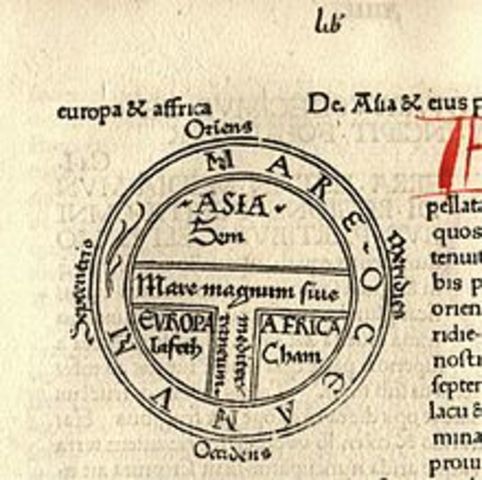 europa & affrica
De. Asia & eius p
Oriens
MARE OCEANUM
ASIA
Sem
Mare magnum siue
mediterraneum.
EVROPA
Iafeth
AFRICA
Cham
Septentrio
Meridies
Occidens
pellata
quos
tenuit
bis p
orien
ridie-
nostr
septen
lacu &
mina
prou